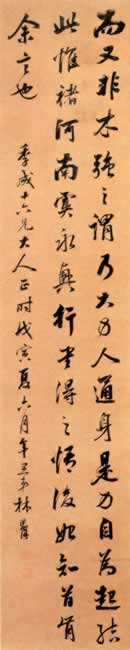 而又非木強之謂乃大力人通身是力自為起結
此惟褚河南虞永興行書得之後始知首肯
余言也
季成十六兄大人正時戊寅夏六月年弟林